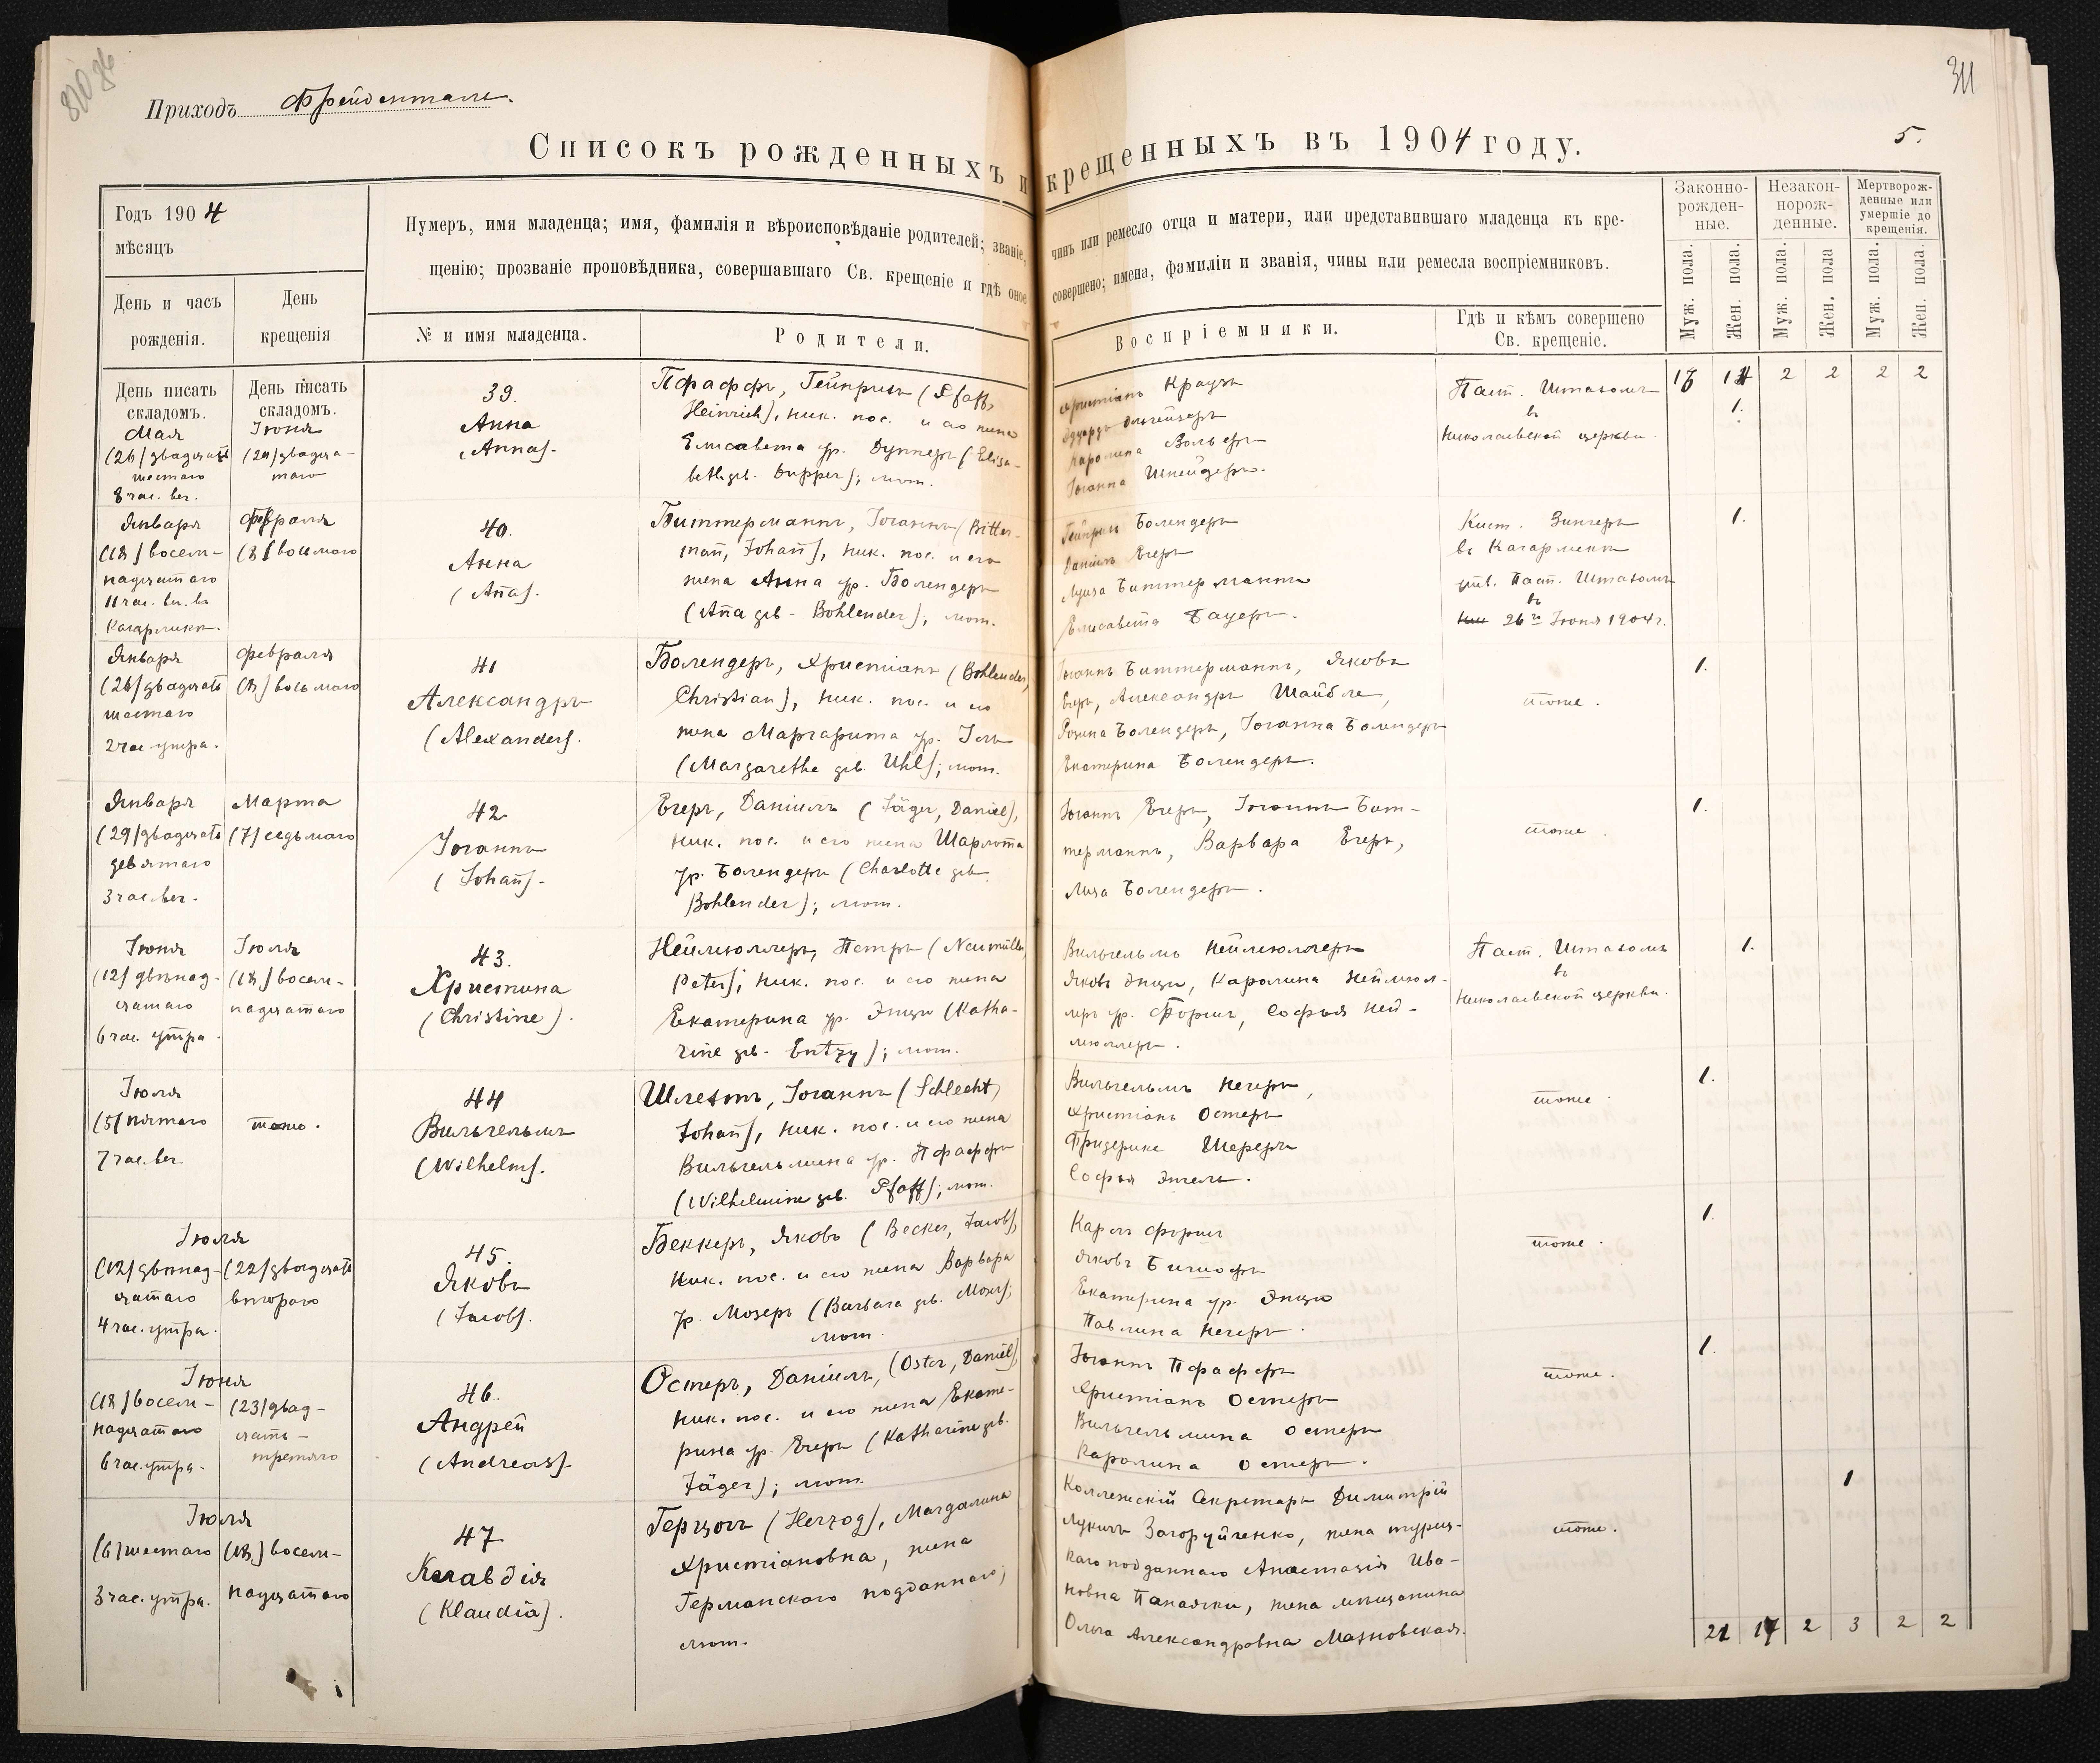 810 об
311
Приходъ Фрейденталь.
5.
Списокъ рожденныхъ и крещенныхъ въ 1904 году.
Годъ 1904
мѣсяцъ
День и часъ
рожденія.
День
крещенія
Нумеръ, имя младенца; имя, фамилія и вѣроисповѣданіе родителей; званіе, чинъ или ремесло отца и матери, или представившаго младенца къ кре-
щенію; прозваніе проповѣдника, совершавшаго Св. крещеніе и гдѣ оное совершено; имена, фамиліи и званія, чины или ремесла воспріемниковъ.
№ и имя младенца.
Родители.
Воспріемники.
Гдѣ и кѣмъ совершено
Св. крещеніе.
Законно-
рожден-
ные.
Незакон-
норож-
денные.
Мертворож-
денные или
умершіе до
крещенія.
Муж. пола.
Жен. пола.
Муж. пола.
Жен. пола
Муж. пола.
Жен. пола.
День писать
складомъ.
Мая
(26) двадцать
шестаго
8 час. веч.
День писать
складомъ.
Іюня
(20) двадца-
таго
39.
Анна
(Anna).
Пфаффъ, Гейнрихъ (Pfaff,
Heinrich), ник. пос. и его жена
Елисавета ур. Дупперъ (Elisa-
beth geb. Dupper); лют.
Христіанъ Краузъ
Эдуардъ
Каролина Вольфъ
Іоганна Шнейдеръ.
Паст. Штахомъ
въ
Николаевской церкви.
2 2 2 2
1.
Января
(18) восем-
надцатаго
11 час. веч. въ
Кагарлыкѣ.
Февраля
(8) восьмаго
40.
Анна
(Aña).
Биттерманнъ, Іоганнъ (Bitter-
mañ, Johañ), ник. пос. и его
жена Анна ур. Болендеръ
(Aña geb. Bohlender), лют.
Гейнрихъ Болендеръ
Даніилъ Егеръ
Луиза Биттерманнъ
Елисавета Бауеръ.
Кист. Зингеръ
въ Кагарлыкѣ
утв. Паст. Штахомъ
въ
26го Іюня 1904 г.
1.
Января
(26) двадцать
шестаго
2 час. утра.
Февраля
(8) восьмаго
41
Александръ
(Alexander).
Болендеръ, Христіанъ (Bohlender,
Christian), ник. пос. и его
жена Маргарита ур. Іль
(Margaretha geb. Uhl); лют.
Іоганнъ Биттерманнъ, Яковъ
Беръ, Александръ Шайбле,
Розина Болендеръ, Іоганна Болендеръ
Екатерина Болендеръ.
тоже.
1.
Января
(29) двадцать
девятаго
3 час. веч.
Марта
(7) седьмаго
42
Іоганнъ
(Johañ).
Егеръ, Даніилъ (Jäger, Daniel),
ник. пос. и его жена Шарлота
ур. Болендеръ (Charlotte geb.
Bohlender); лют.
Іоганнъ Егеръ, Іоганнъ Бит-
терманнъ, Варвара Егеръ,
Лиза Болендеръ.
тоже.
1.
Іюня
(12) двѣнад-
цатаго
6 час. утра.
Іюля
(18) восем-
надцатаго
43.
Христина
(Christine).
Неймюллеръ, Петръ (Neumüller,
Peter); ник. пос. и его жена
Екатерина ур. Энци (Katha-
rine geb. Entzy); лют.
Вильгельмъ Неймюллеръ
Яковъ Энци, Каролина Неймюл-
леръ ур. Форшъ, Софья Ней-
мюллеръ.
Паст. Штахомъ
въ
Николаевской церкви.
1.
Іюля
(5) пятаго
7 час. веч.
тоже.
44
Вильгельмъ
(Wilhelm).
Шлехтъ, Іоганнъ (Schlecht,
Johañ), ник. пос. и его жена
Вильгельмина ур. Пфаффъ
(Wilhelmine geb. Pfaff); лют.
Вильгельмъ Негеръ,
Христіанъ Остеръ
Фридерике Шереръ
Софья Энгель.
тоже.
1.
Іюля
(12) двѣнад-
цатаго
4 час. утра.
(22) двадцать
втораго
45.
Яковъ
(Jacob).
Беккеръ, Яковъ (Becker, Jacob),
ник. пос. и его жена Варвара
ур. Мозеръ (Barbara geb. Moser);
лют.
Карлъ Форшъ
Яковъ Бишофъ
Екатерина ур. Энци
Павлина Негеръ.
тоже.
1.
Іюня
(18) восем-
надцатаго
6 час. утра.
(23) двад-
цать-
третяго
46.
Андрей
(Andreas).
Остеръ, Даніилъ, (Oster, Daniel),
ник. пос. и его жена Екате-
рина ур. Егеръ (Katharine geb.
Jäger); лют.
Іоганнъ Пфаффъ
Христіанъ Остеръ
Вильгельмина Остеръ
Каролина Остеръ.
тоже.
1.
Іюля
(6) шестаго
3 час. утра.
(18) восем-
надцатаго
47
Клавдія
(Klaudia).
Герцогъ (Herzog), Магдалина
Христіановна, жена
Германскаго подданнаго;
лют.
Коллежскій Секретарь Димитрій
Лукичъ Загоруйченко, жена турец-
каго подданнаго Анастасія Ива-
новна Панаяки, жена мѣщанина
Ольга Александровна Махновская.
тоже.
1
21 17 2 3 2 2